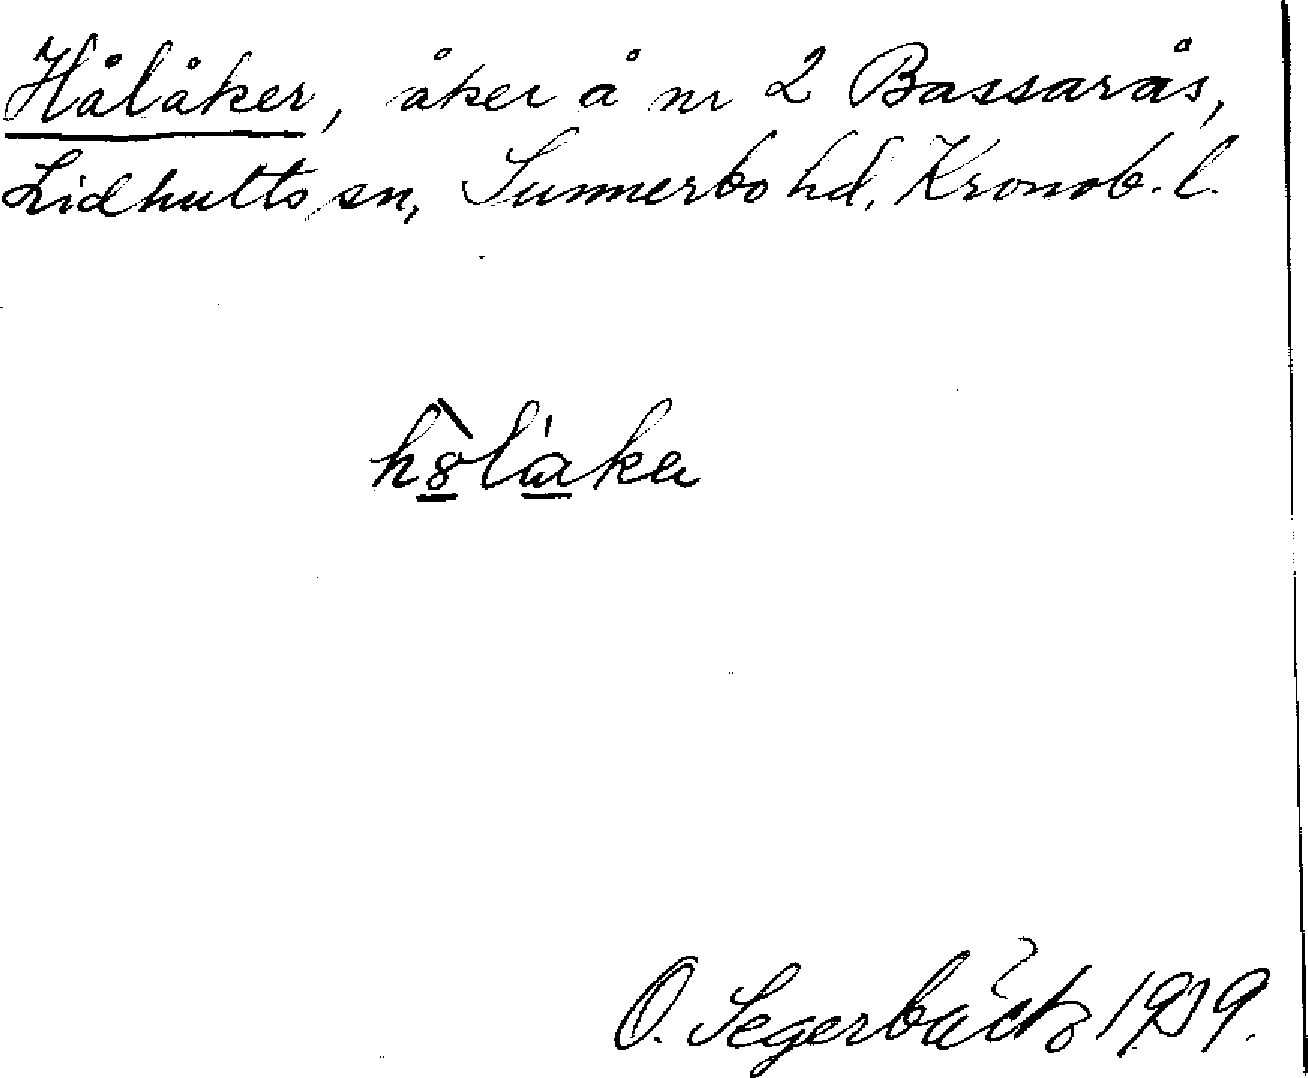 Hålåker, åker å nr 2 Bassarås,
Lidhults sn, Sunnerbo hd, Kronob. l.
O. Segerbäck 1919.